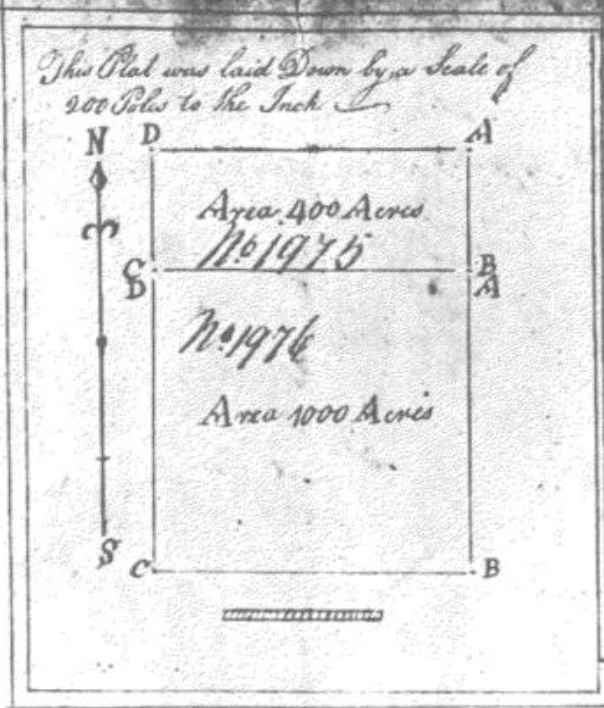 This Plat was laid Down by a Scale of
200 Poles to the Inch
N D A
Area 400 Acres
No 1975
C B
D A
No 1976
Area 1000 Acres
S C B